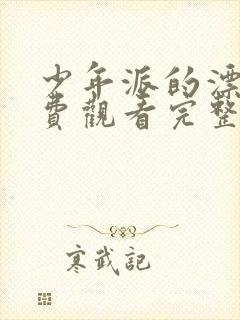 少年派的漂
費觀看完整
寒武記